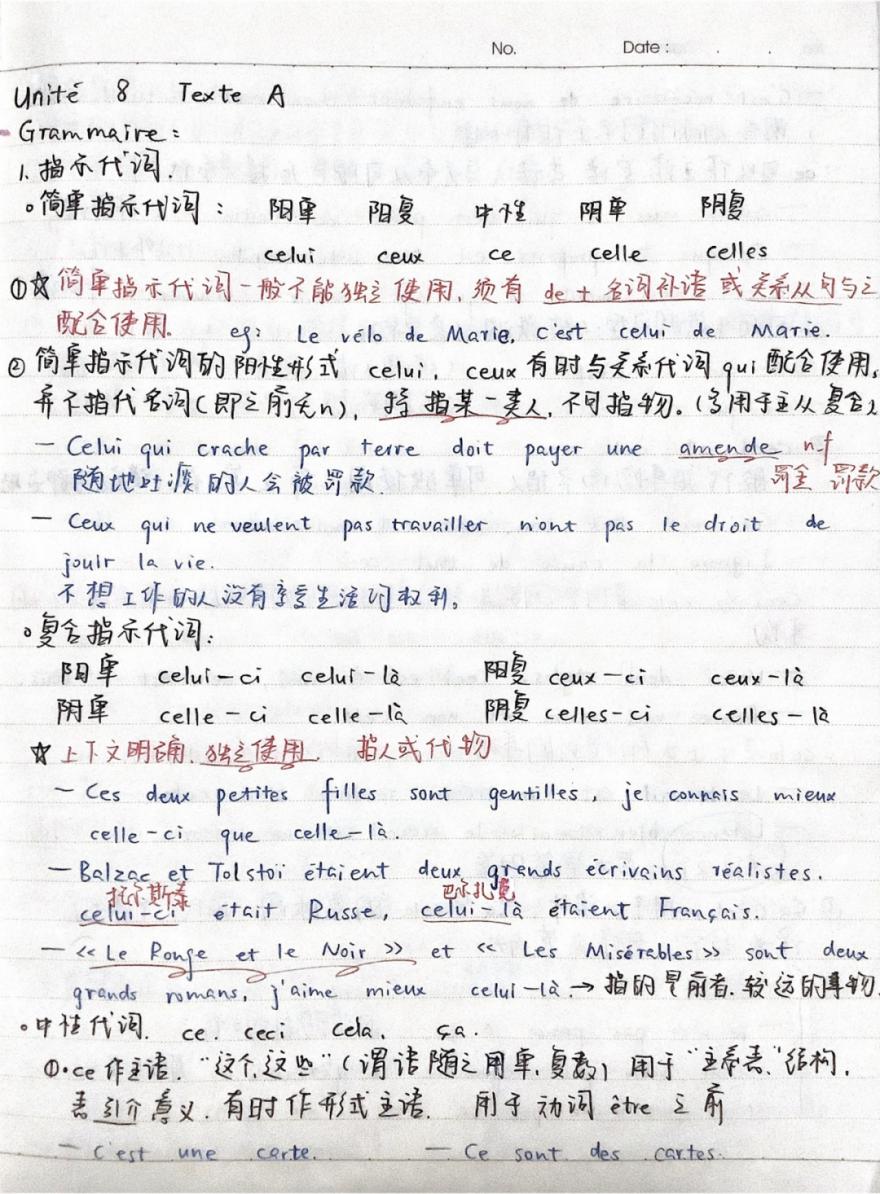 No. Date : . .
Unité 8 Texte A
- Grammaire :
1. 指示代词.
○简单指示代词 : 阳单 阳复 中性 阴单 阴复
celui ceux ce celle celles
①☆ 简单指示代词一般不能独立使用, 须有 de + 名词补语 或 关系从句与之
配合使用. eg: Le vélo de Marie, c'est celui de Marie.
② 简单指示代词的阳性形式 celui, ceux 有时与关系代词 qui 配合使用,
并不指代名词(即之前无n), 特指某一类人, 不可指物。(多用于主从复合)
— Celui qui crache par terre doit payer une amende n·f
随地吐痰的人会被罚款 罚金 罚款
— Ceux qui ne veulent pas travailler n'ont pas le droit de
jouir la vie.
不想工作的人没有享受生活的权利。
○复合指示代词:
阳单 celui-ci celui-là 阳复 ceux-ci ceux-là
阴单 celle-ci celle-là 阴复 celles-ci celles-là
☆ 上下文明确, 独立使用, 指人或代物
— Ces deux petites filles sont gentilles, je connais mieux
celle-ci que celle-là.
— Balzac et Tolstoï étaient deux grands écrivains réalistes.
托尔斯泰 巴尔扎克
celui-ci était Russe, celui-là étaient Français.
— « Le Rouge et le Noir » et « Les Misérables » sont deux
grands romans, j'aime mieux celui-là. → 指的是前者, 较远的事物
○中性代词. ce. ceci cela. ça.
①·ce 作主语. "这个, 这些" (谓语随之用单复数) 用于"主系表"结构,
表引介意义, 有时作形式主语. 用于动词 être 之前
— C'est une carte. — Ce sont des cartes.